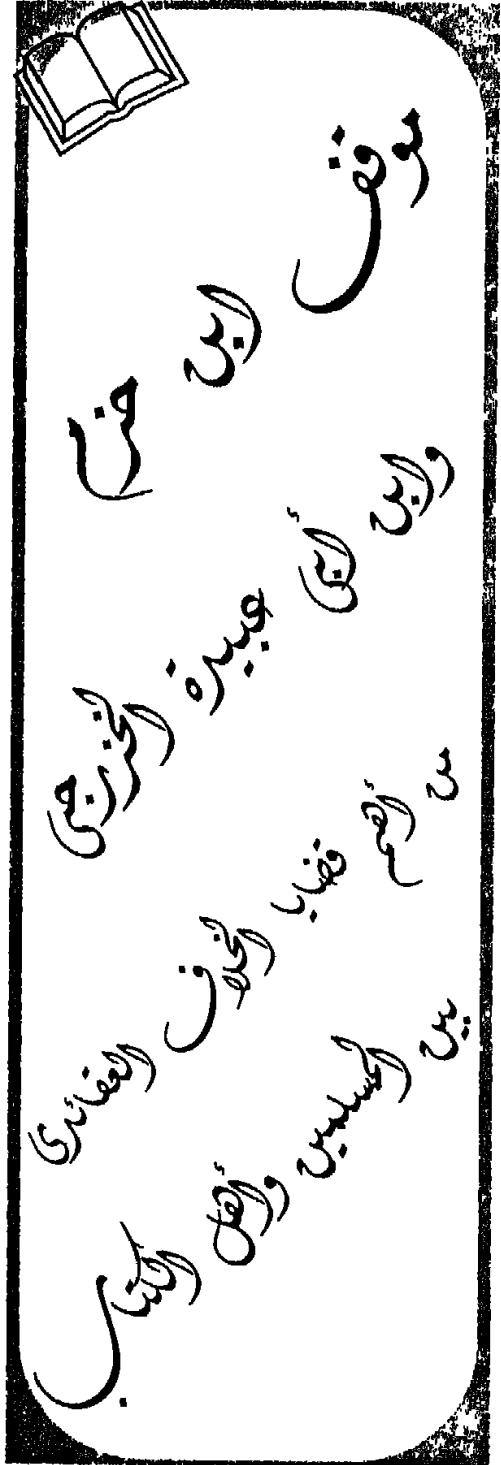 موقف ابن حزم
وابن أبى عبيدة الخزرجى
من أهم قضايا الخلاف العقائدى
بين المسلمين وأهل الكتاب